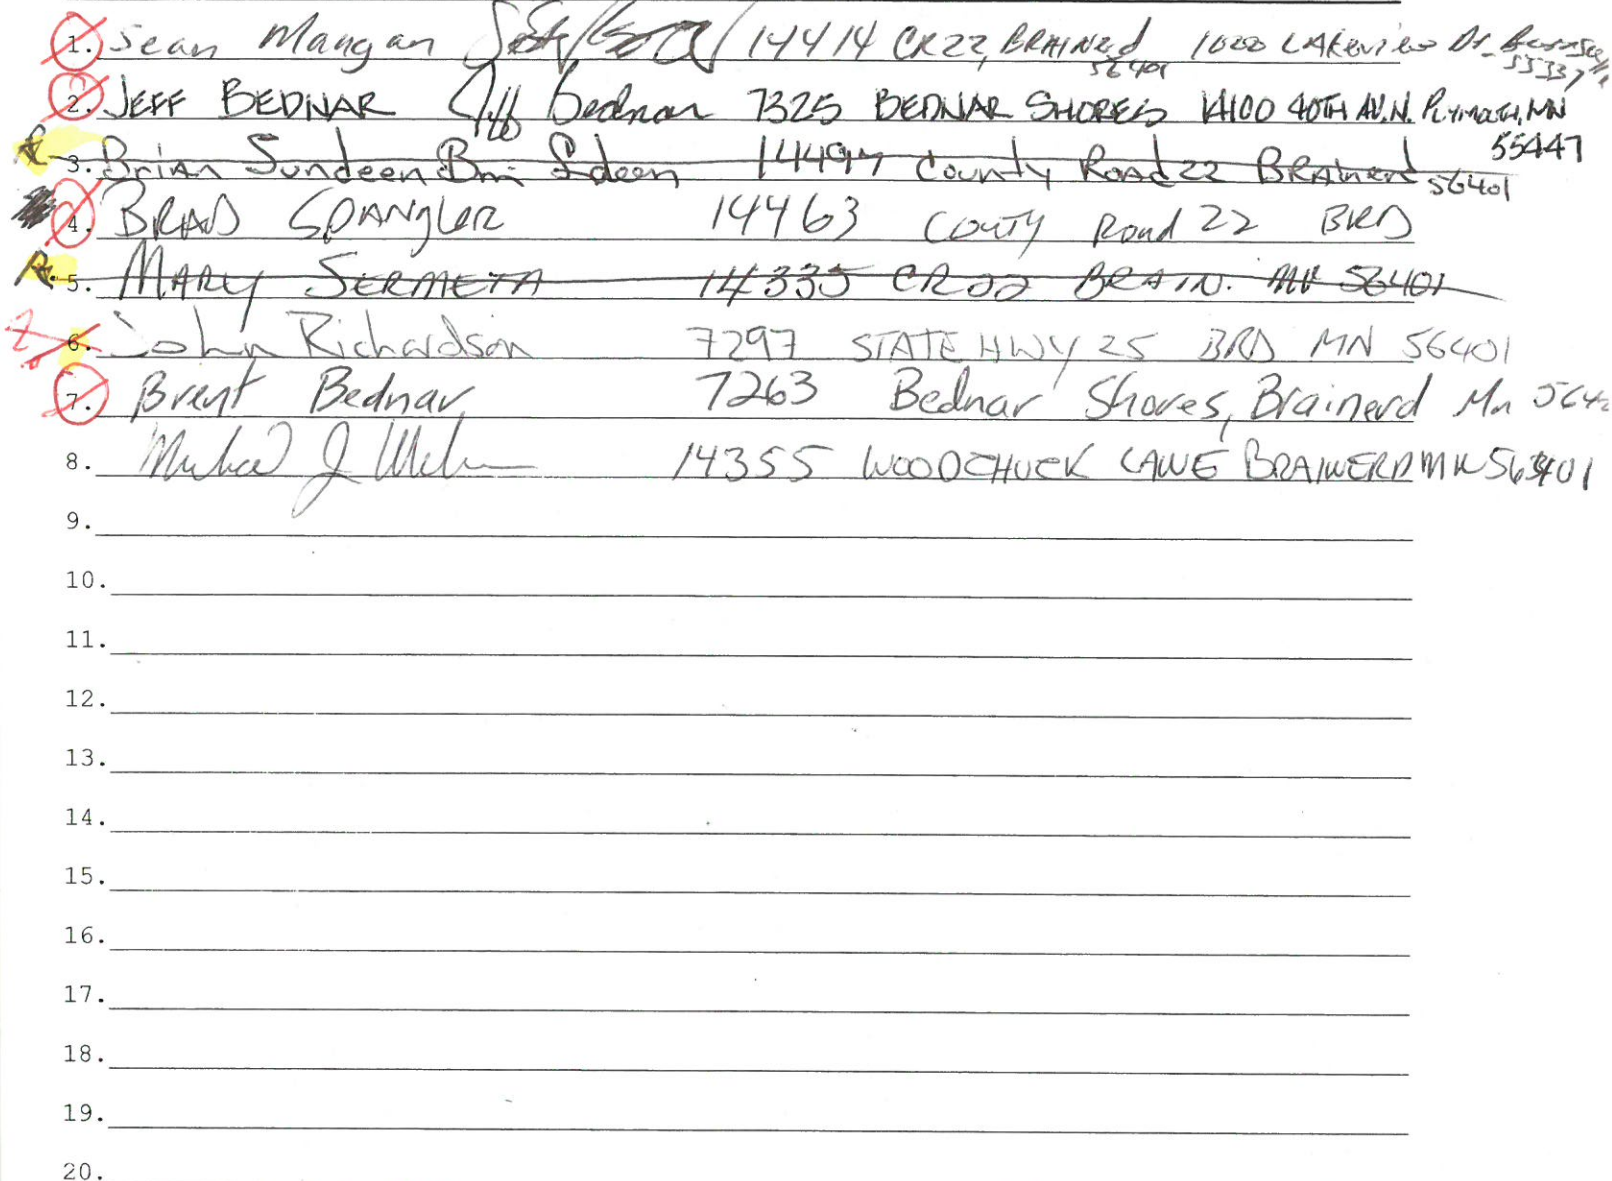 1. Sean Mangan 14414 CR22, BRAINEd 56401 LAKeview Dr. 55337
2. JEFF BEDNAR Jeff Bednar 7325 BEDNAR SHORES 14100 40TH AV.N. PLYMOUTH, MN 55447
3. Brian Sundeen 14497 County Road 22 BRAinerd 56401
4. BRAD SPANGLER 14463 COUTY Road 22 BRD
5. MARY SERMETA 14335 CR22 BRAIN. MN 56401
6. John Richardson 7297 STATE HWY 25 BRD MN 56401
7. Brent Bednar 7263 Bednar Shores, Brainerd Mn
8. Michael J 14355 WOODCHUCK LANE BRAINERD MN
9.
10.
11.
12.
13.
14.
15.
16.
17.
18.
19.
20.